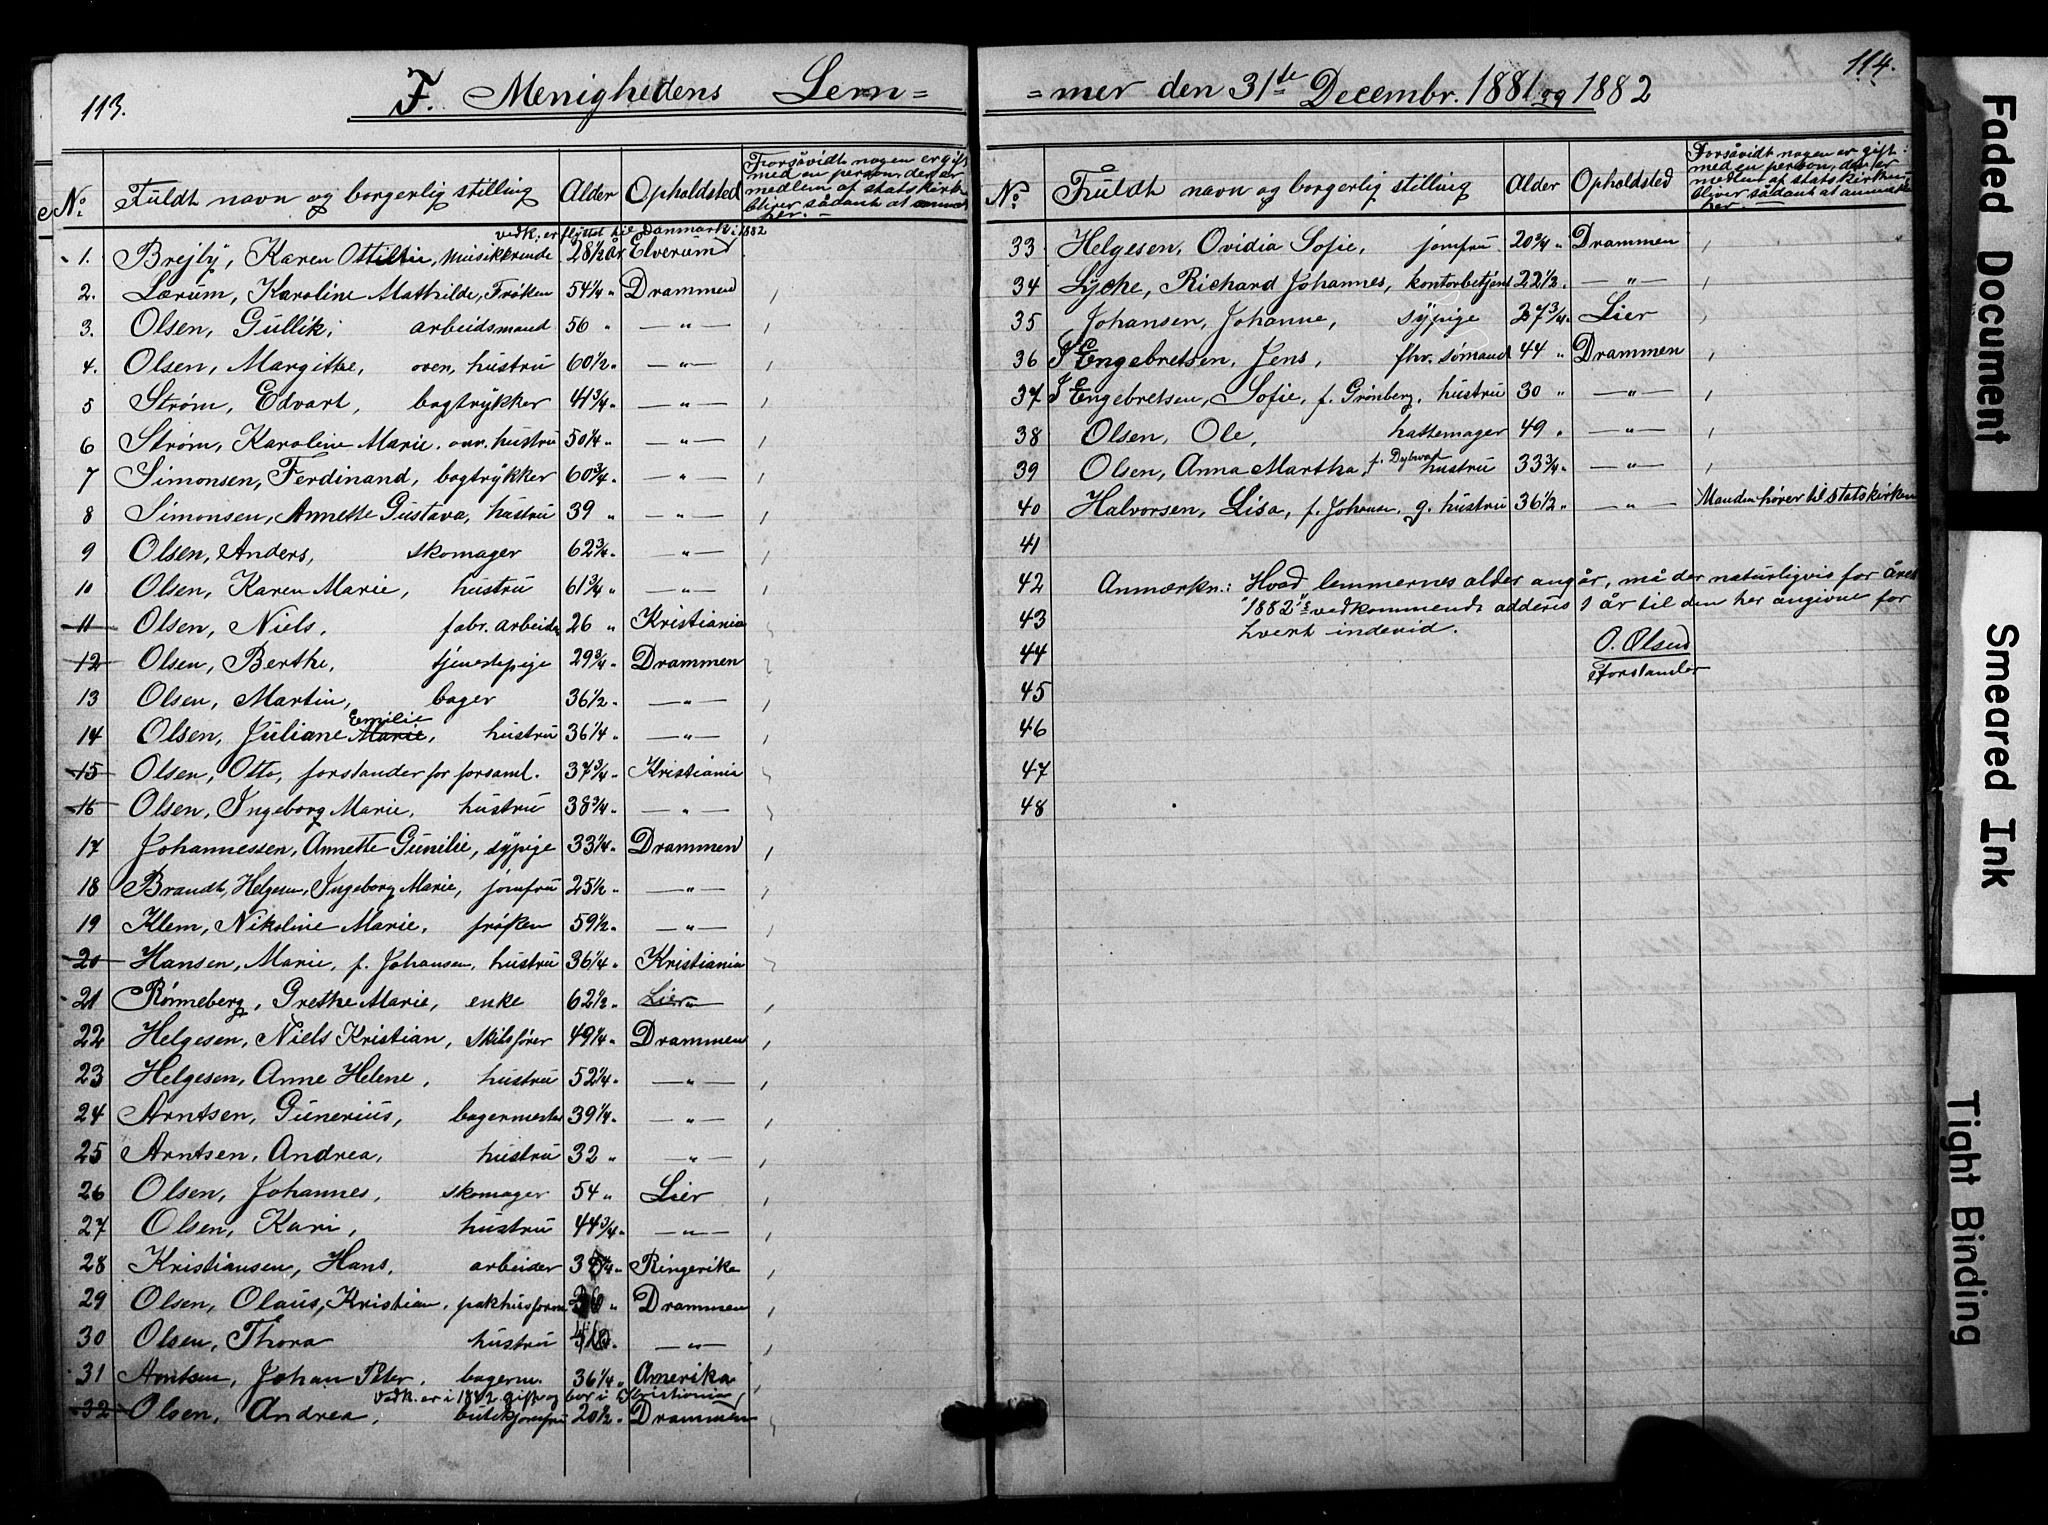 113.
F. Menighedens Lem=
No. Fuldt navn og borgerlig stilling Alder Opholdsted Forsåvidt nogen er gift med en person, der er medlem af statskirken bliver sådant at anmærke her.
vedk. er flyttet til Danmark i 1882
1. Brejby, Karen Ottilia, musikkrinde 28 1/2 år Elverum
2. Lærum, Karoline Mathilde, Frøken 54 1/4 " Drammen
3. Olsen, Gullik, arbeidsmand 56 " —"—
4. Olsen, Margithe, oven, hustru 60 1/2 " —"—
5 Strøm, Edvart, bogtrykker 41 3/4 " —"—
6 Strøm, Karoline Marie, ovn. hustru 50 1/4 " —"—
7 Simonsen, Ferdinand, bogtrykker 60 3/4 " —"—
8 Simonsen, Annette Gustava, hustru 39 " —"—
9 Olsen, Anders, skomager 62 3/4 " —"—
10 Olsen, Karen Marie, hustru 61 3/4 " —"—
11 Olsen, Niels, fabr. arbeider 26 " Kristiania
12 Olsen, Berthe, tjenestepige 29 3/4 " Drammen
13 Olsen, Martin, bager 36 1/2 " —"—
14 Olsen, Juliane Marie Emilie, hustru 36 1/4 " —"—
15 Olsen, Otto, forstander for forsaml. 37 3/4 " Kristiania
16 Olsen, Ingeborg Marie, hustru 38 3/4 " —"—
17 Johannessen, Annette Gunilie, sypige 33 1/4 " Drammen
18 Brandt, Helgesen, Ingeborg Marie, jomfru 25 1/2 " —"—
19 Klem, Nikoline Marie, frøken 59 1/2 " —"—
20 Hansen, Marie, f. Johansen, hustru 36 1/4 " Kristiania
21 Rønneberg, Grethe Marie, enke 62 1/2 " Lier "
22 Helgesen, Niels Kristian, skibsfører 49 1/4 " Drammen
23 Helgesen, Anne Helene, hustru 52 1/4 " —"—
24 Arntsen, Gunerius, bagermester 39 1/4 " —"—
25 Arntsen, Andrea, hustru 32 " —"—
26 Olsen, Johannes, skomager 54 " Lier
27 Olsen, Kari, hustru 44 3/4 " —"—
28 Kristiansen, Hans, arbeider Ringerike
29 Olsen, Olaus, Kristian, pakhusform " Drammen
30 Olsen, Thora hustru —"—
31 Arntsen, Johan Peter, bagerm. 36 1/4 " Amerika
vedk. er i 1882 gift og bor i Kristiania
32 Olsen, Andrea, butikjomfru 20 1/2 " Drammen
114.
=mer den 31te Decembr. 1881 og 1882
No. Fuldt navn og borgerlig stilling Alder Opholdsted Forsåvidt nogen er gift med en person, den er medlem af statskirken, bliver sådant at anmærke her.
33 Helgesen, Ovidia Sofie, jomfru 20 3/4 " Drammen
34 Lyche, Richard Johannes, kontorbetjent 22 1/2 " —"—
35 Johansen, Johanne, sypige 27 3/4 " Lier
36 Engebretsen, Jens, fhv. sømand 44 " Drammen
37 Engebretsen, Sofie, f. Grønberg, hustru 30 " —"—
38 Olsen, Ole, hattemager 49 " —"—
39 Olsen, Anna Martha, f. Dybwad hustru 33 3/4 " —"—
40 Halvorsen, Lisa, f. Johansen, g. hustru 36 1/2 " —"— Manden hører til statskirken
41
42 Anmærkn.: Hvad lemmernes alder angår, må der naturligvis for året
43 "1882"s vedkommende adderes 1 år til den her angivne for
hvert individ.
44 O. Olsen
Forstander
45
46
47
48
Faded Document
Smeared Ink
Tight Binding